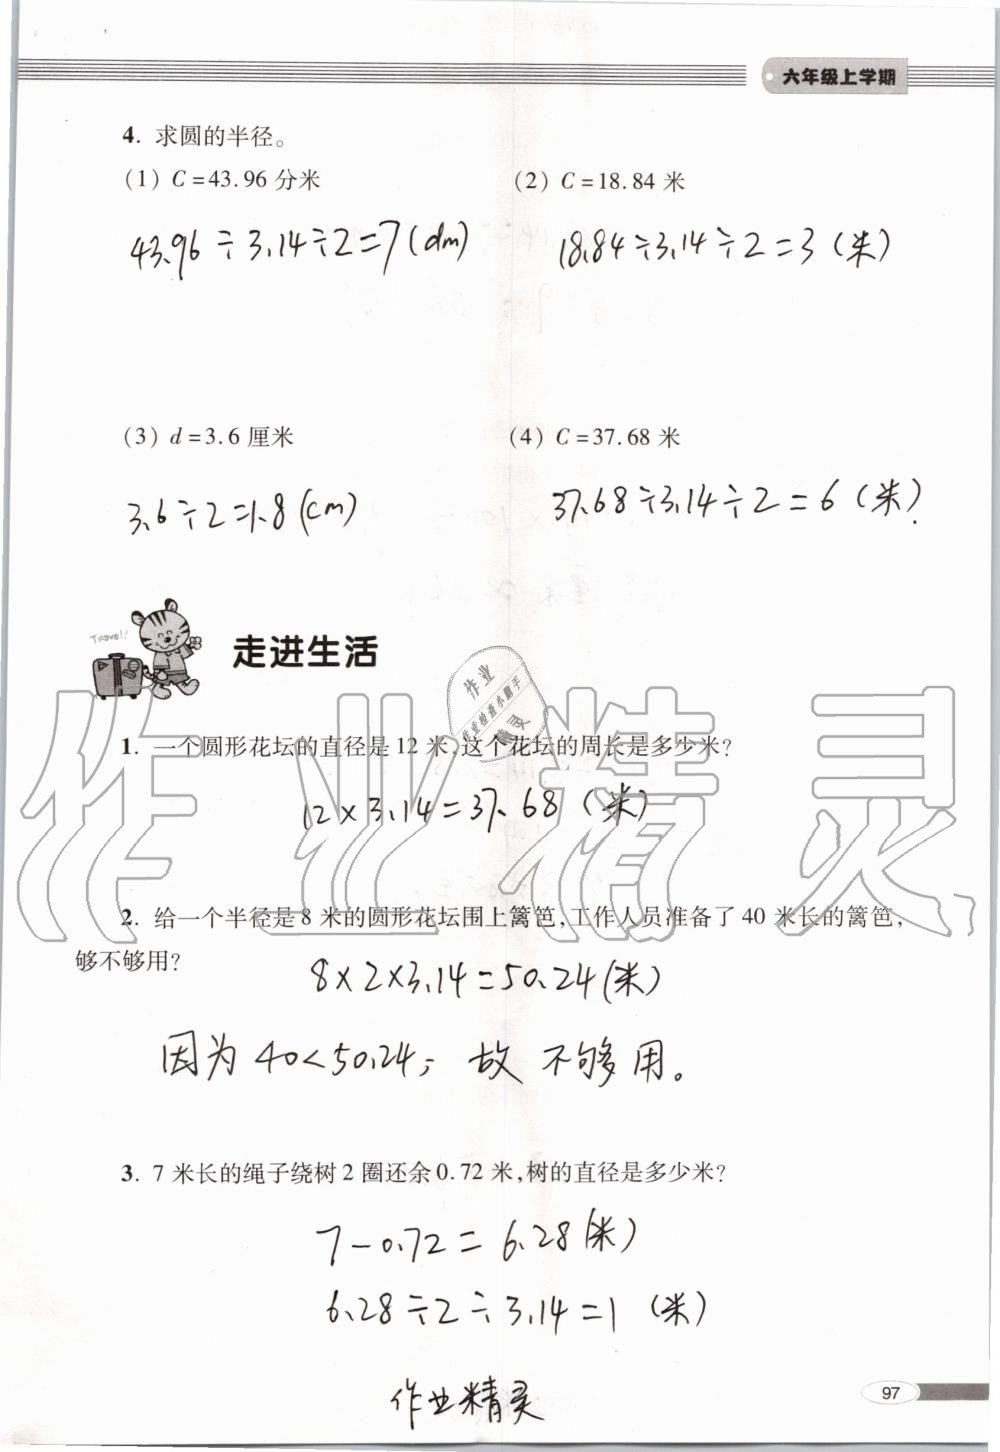 六年级上学期
4. 求圆的半径。
(1) C=43.96 分米
(2) C=18.84 米
43.96÷3.14÷2=7(dm)
18.84÷3.14÷2=3(米)
(3) d=3.6 厘米
(4) C=37.68 米
3.6÷2=1.8(cm)
37.68÷3.14÷2=6(米).
Travel!
走进生活
作业
作业检查小助手
精灵
1. 一个圆形花坛的直径是 12 米,这个花坛的周长是多少米?
12×3.14=37.68(米)
作业精灵
2. 给一个半径是 8 米的圆形花坛围上篱笆,工作人员准备了 40 米长的篱笆,
够不够用?
8×2×3.14=50.24(米)
因为40<50.24, 故 不够用。
3. 7 米长的绳子绕树 2 圈还余 0.72 米,树的直径是多少米?
7-0.72=6.28(米)
6.28÷2÷3.14=1 (米)
作业精灵
97